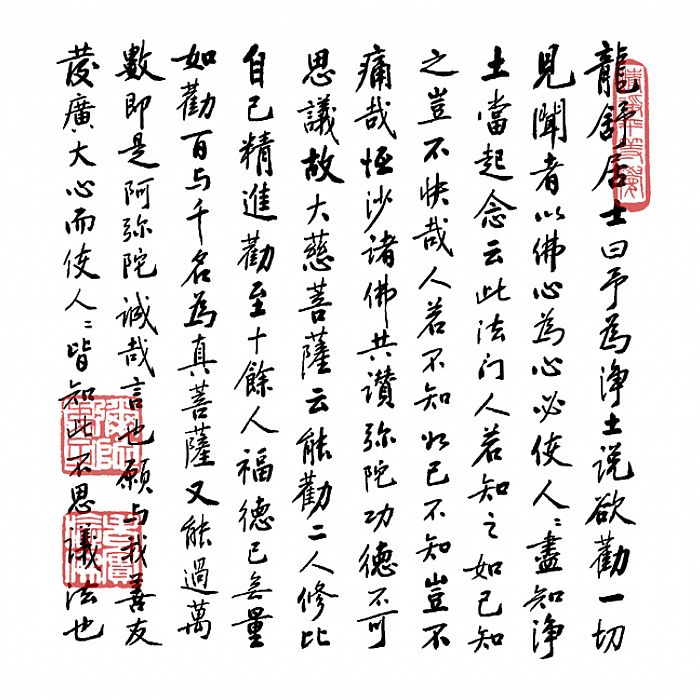 龍舒居士曰予為淨土说欲勸一切
見聞者以佛心為心必使人々盡知淨
土當起念云此法门人若知之如己知
之豈不快哉人若不知如己不知豈不
痛哉恒沙诸佛共讃弥陀功德不可
思議故大慈菩薩云能勸二人修比
自己精進勸至十餘人福德已無量
如勸百与千名為真菩薩又能過萬
數即是阿弥陀誠哉言也願与我善友
發廣大心而使人々皆知此不思議法也